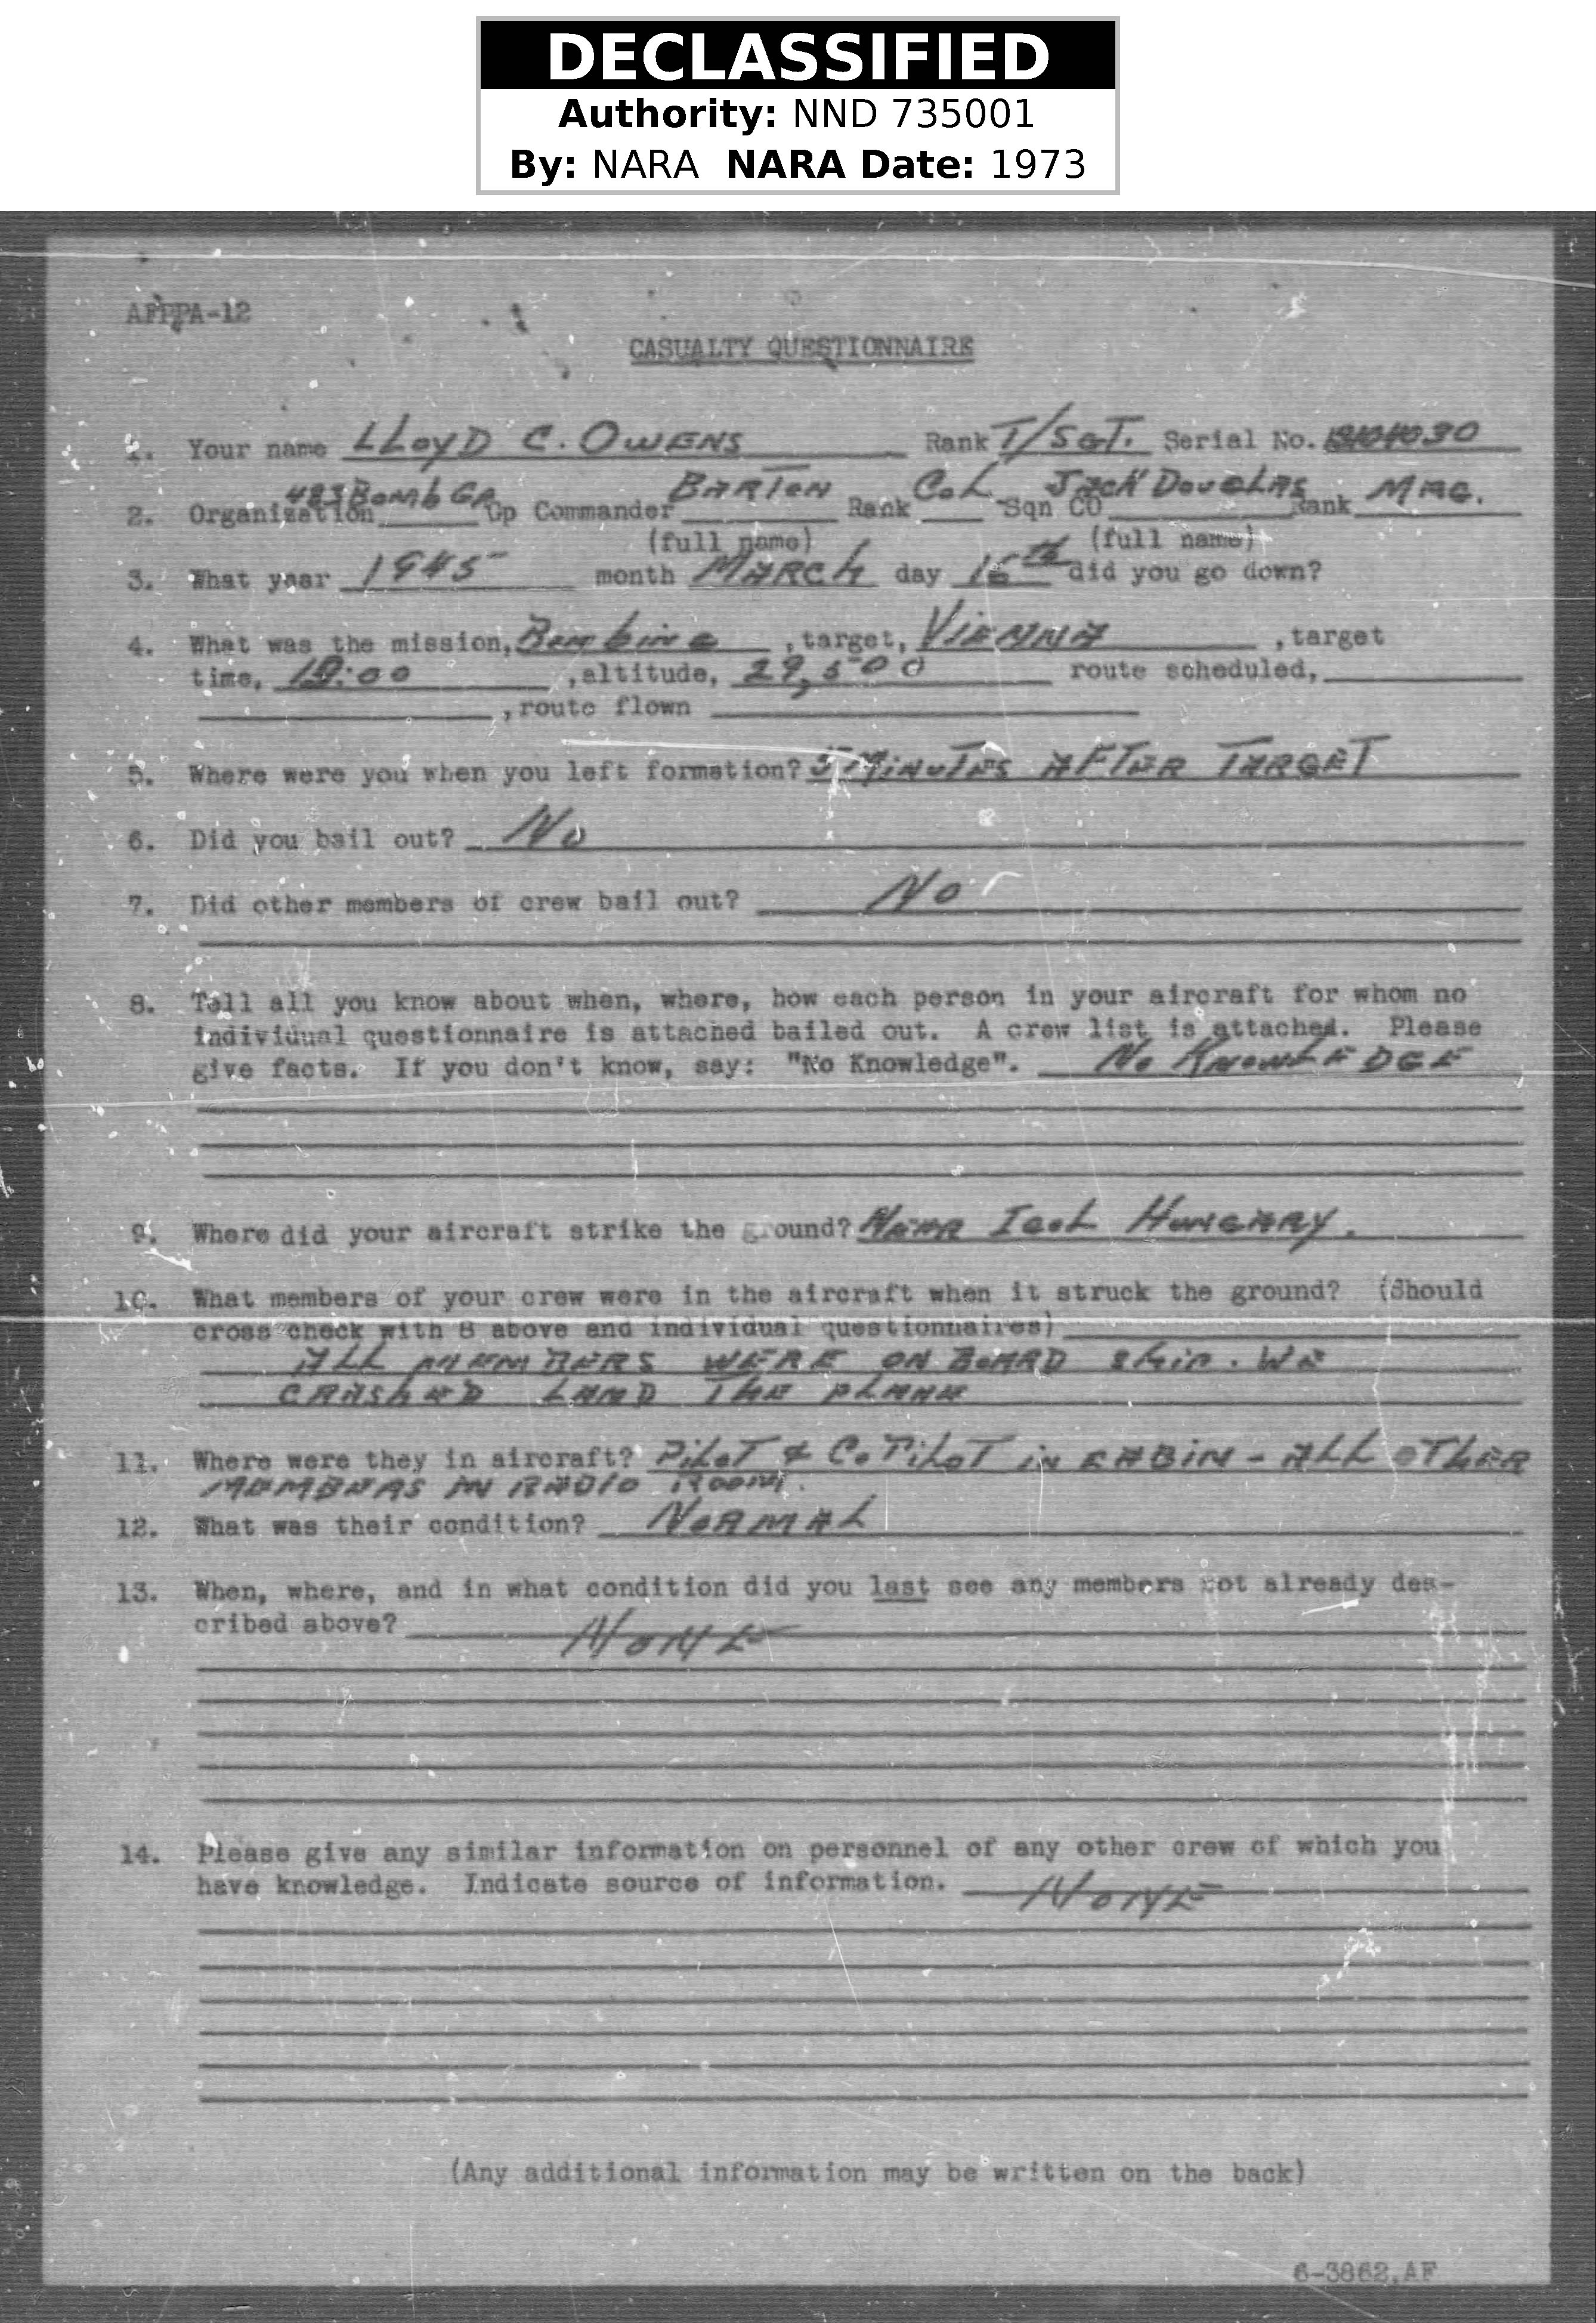 DECLASSIFIED
Authority: NND 735001
By: NARA NARA Date: 1973
AFPPA-12
CASUALTY QUESTIONNAIRE
1. Your name LLOYD C. OWENS Rank T/SGT. Serial No.
2. Organization 483 Bomb GP Gp Commander BARTON Rank COL. Sqn CO JACK DOUGLAS Rank MAG.
(full name) (full name)
3. What year 1945 month MARCH day 16th did you go down?
4. What was the mission, Bombing , target, VIENNA , target
time, , altitude, 29,500 route scheduled,
, route flown
5. Where were you when you left formation? 5 MINUTES AFTER TARGET
6. Did you bail out? No
7. Did other members of crew bail out? No
8. Tell all you know about when, where, how each person in your aircraft for whom no
individual questionnaire is attached bailed out. A crew list is attached. Please
give facts. If you don't know, say: "No Knowledge". No KNOWLEDGE
9. Where did your aircraft strike the ground? NEAR HUNGARY.
10. What members of your crew were in the aircraft when it struck the ground? (Should
cross check with 8 above and individual questionnaires)
ALL MEMBERS WERE ON BOARD SHIP. WE
CRASHED LAND THE PLANE
11. Where were they in aircraft? PILOT & CO PILOT IN CABIN - ALL OTHER
MEMBERS IN RADIO ROOM.
12. What was their condition? NORMAL
13. When, where, and in what condition did you last see any members not already des-
cribed above? NONE
14. Please give any similar information on personnel of any other crew of which you
have knowledge. Indicate source of information. NONE
(Any additional information may be written on the back)
6-3862,AF